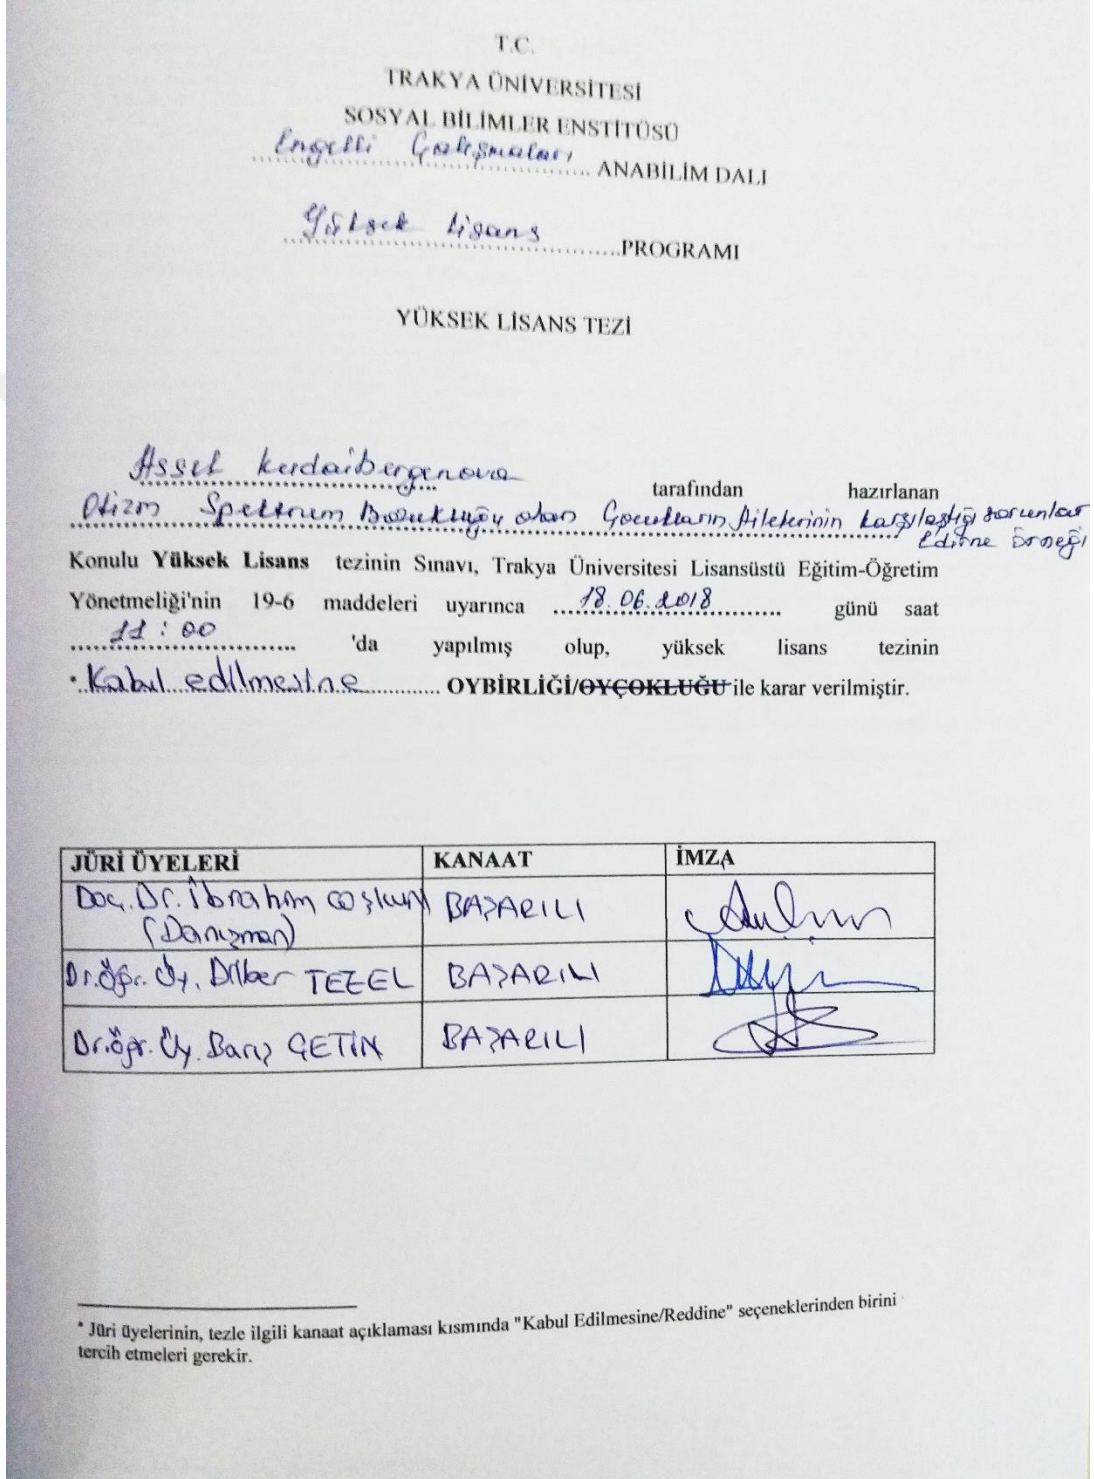 T.C.
TRAKYA ÜNİVERSİTESİ
SOSYAL BİLİMLER ENSTİTÜSÜ
Engelli Çalışmaları ANABİLİM DALI
Yüksek Lisans PROGRAMI
YÜKSEK LİSANS TEZİ
Assel Kudaibergenova tarafından hazırlanan
Otizm Spektrum Bozukluğu olan Çocukların Ailelerinin karşılaştığı sorunlar
Edirne Örneği
Konulu Yüksek Lisans tezinin Sınavı, Trakya Üniversitesi Lisansüstü Eğitim-Öğretim
Yönetmeliği'nin 19-6 maddeleri uyarınca 18.06.2018 günü saat
11:00 'da yapılmış olup, yüksek lisans tezinin
*Kabul edilmesine OYBİRLİĞİ/OYÇOKLUĞU ile karar verilmiştir.
JÜRİ ÜYELERİ KANAAT İMZA
Doç. Dr. İbrahim COŞKUN BAŞARILI
(Danışman)
Dr. Öğr. Üy. Dilber TEZEL BAŞARILI
Dr. Öğr. Üy. Barış ÇETİN BAŞARILI
* Jüri üyelerinin, tezle ilgili kanaat açıklaması kısmında "Kabul Edilmesine/Reddine" seçeneklerinden birini
tercih etmeleri gerekir.